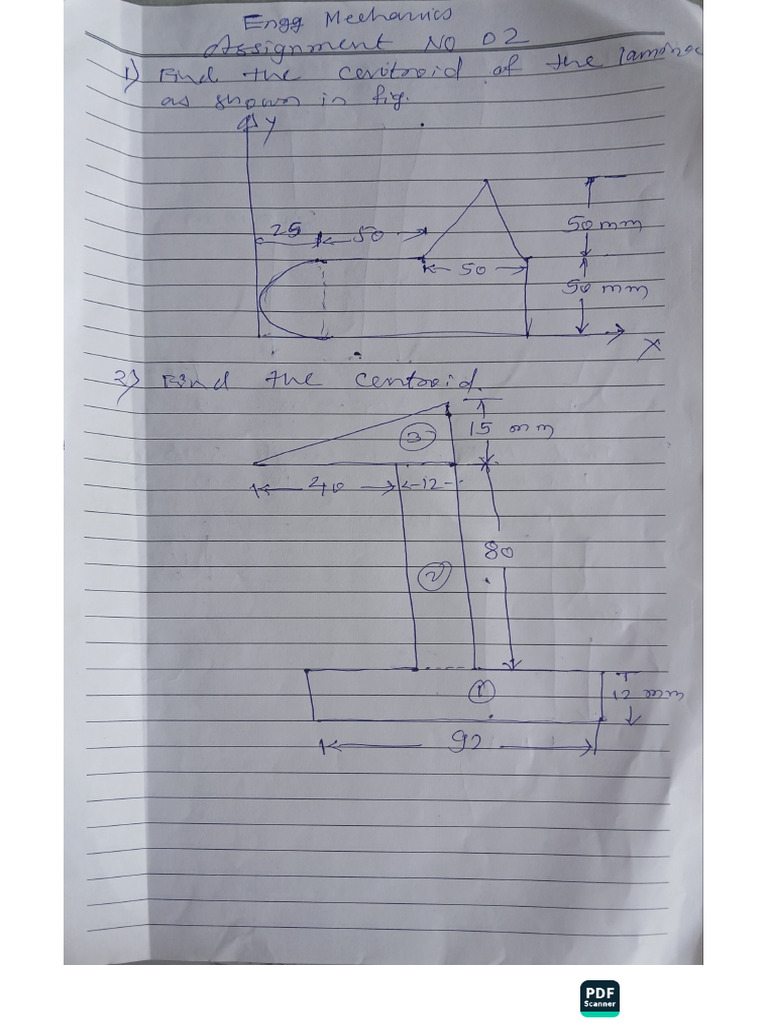 Engg Mechanics
Assignment NO 02
1) Find the centroid of the laminae
as shown in fig.
Y
25
50
50 mm
50
50 mm
X
2) Find the centroid.
3
15 mm
40
12
80
2
1
12 mm
92
PDF
Scanner